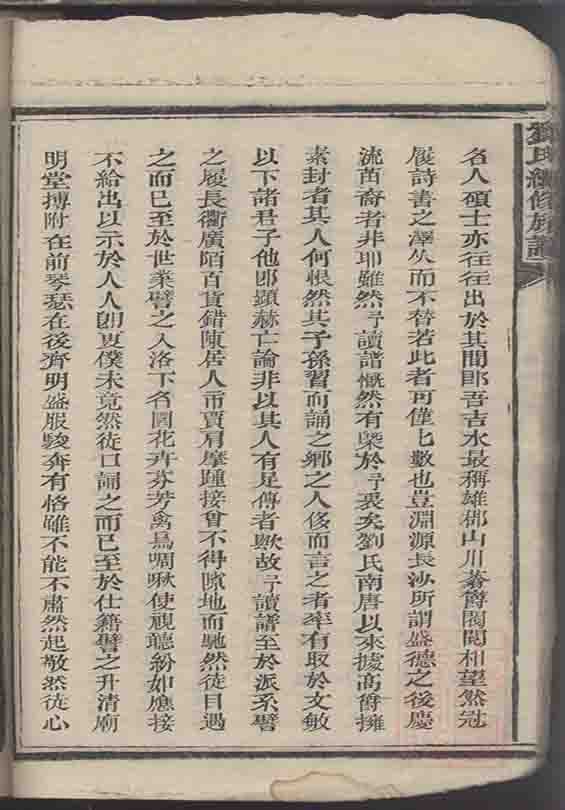 劉氏續修族譜
名人碩士亦往往出於其間郎吾吉水最稱雄郡山川蓊鬱閥閱相望然冠
屐詩書之澤久而不替若此者可僅匕數也豈淵源長沙所謂盛德之後慶
流苗裔者非耶雖然予讀譜慨然有槩於予衷矣劉氏南唐以來據高爵擁
素封者其人何恨然其子孫習而誦之鄉之人侈而言之者率有取於文敏
以下諸君子他郎顯赫亡論非以其人有足傳者歟故予讀譜至於派系譬
之履長衢廣陌百貨錯陳居人市賈肩摩踵接曾不得隙地而馳然徒目遇
之而已至於世業譬之入洛下名園花卉芬芳禽鳥啁啾使視聽紛如應接
不給出以示於人人卽更僕未竟然徒口誦之而已至於仕籍譬之升清廟
明堂搏附在前琴瑟在後齊明盛服駿奔有恪雖不能不肅然起敬然徒心